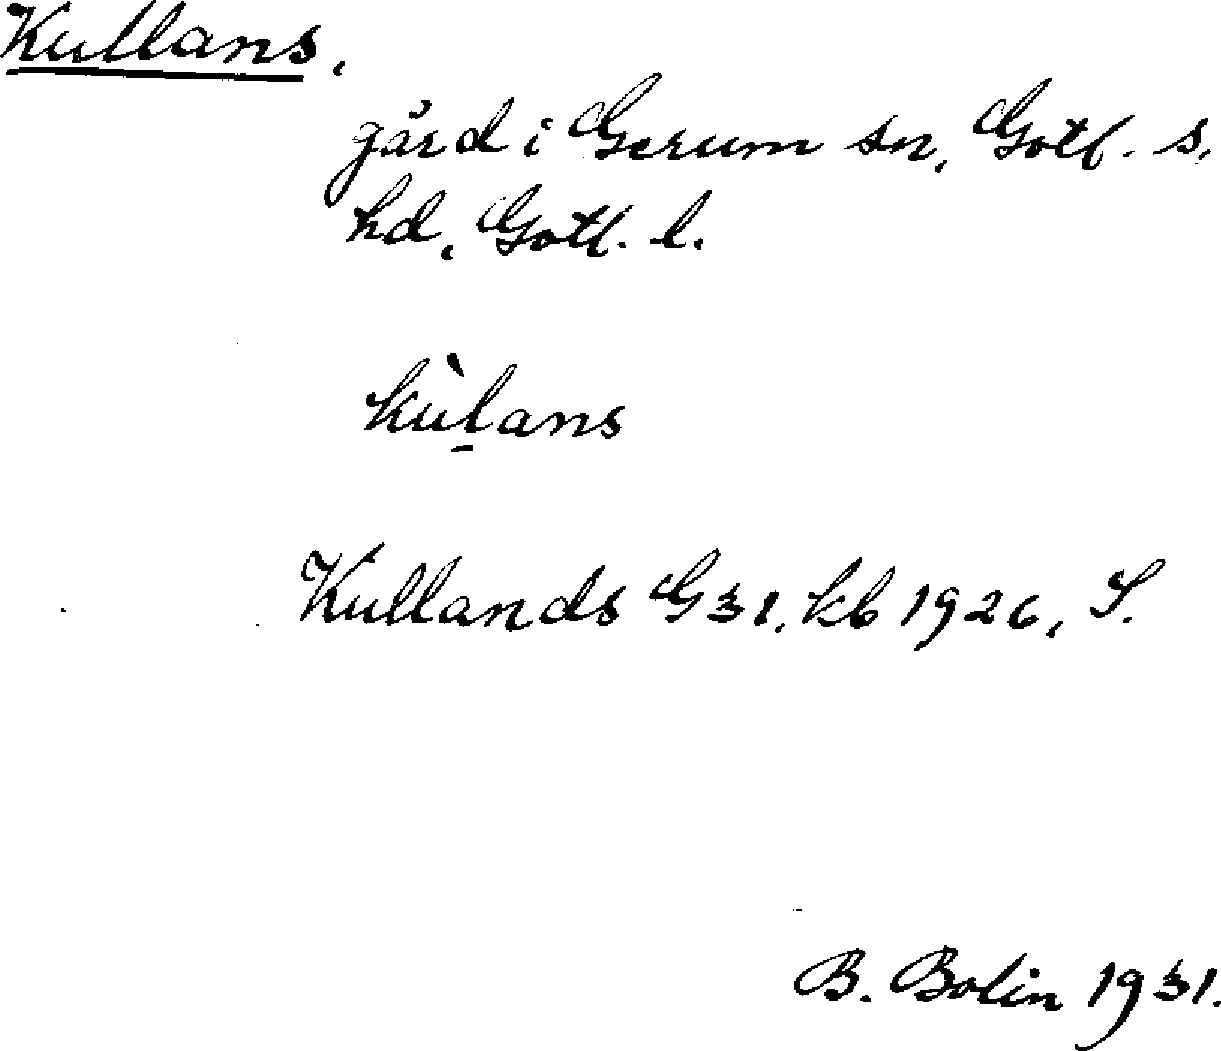 Kullans,
gård i Gerum sn, Gotl. s.
hd, Gotl. l.
kùl̠ans
Kullands G 31, kb 1926, S.
B. Bolin 1931.